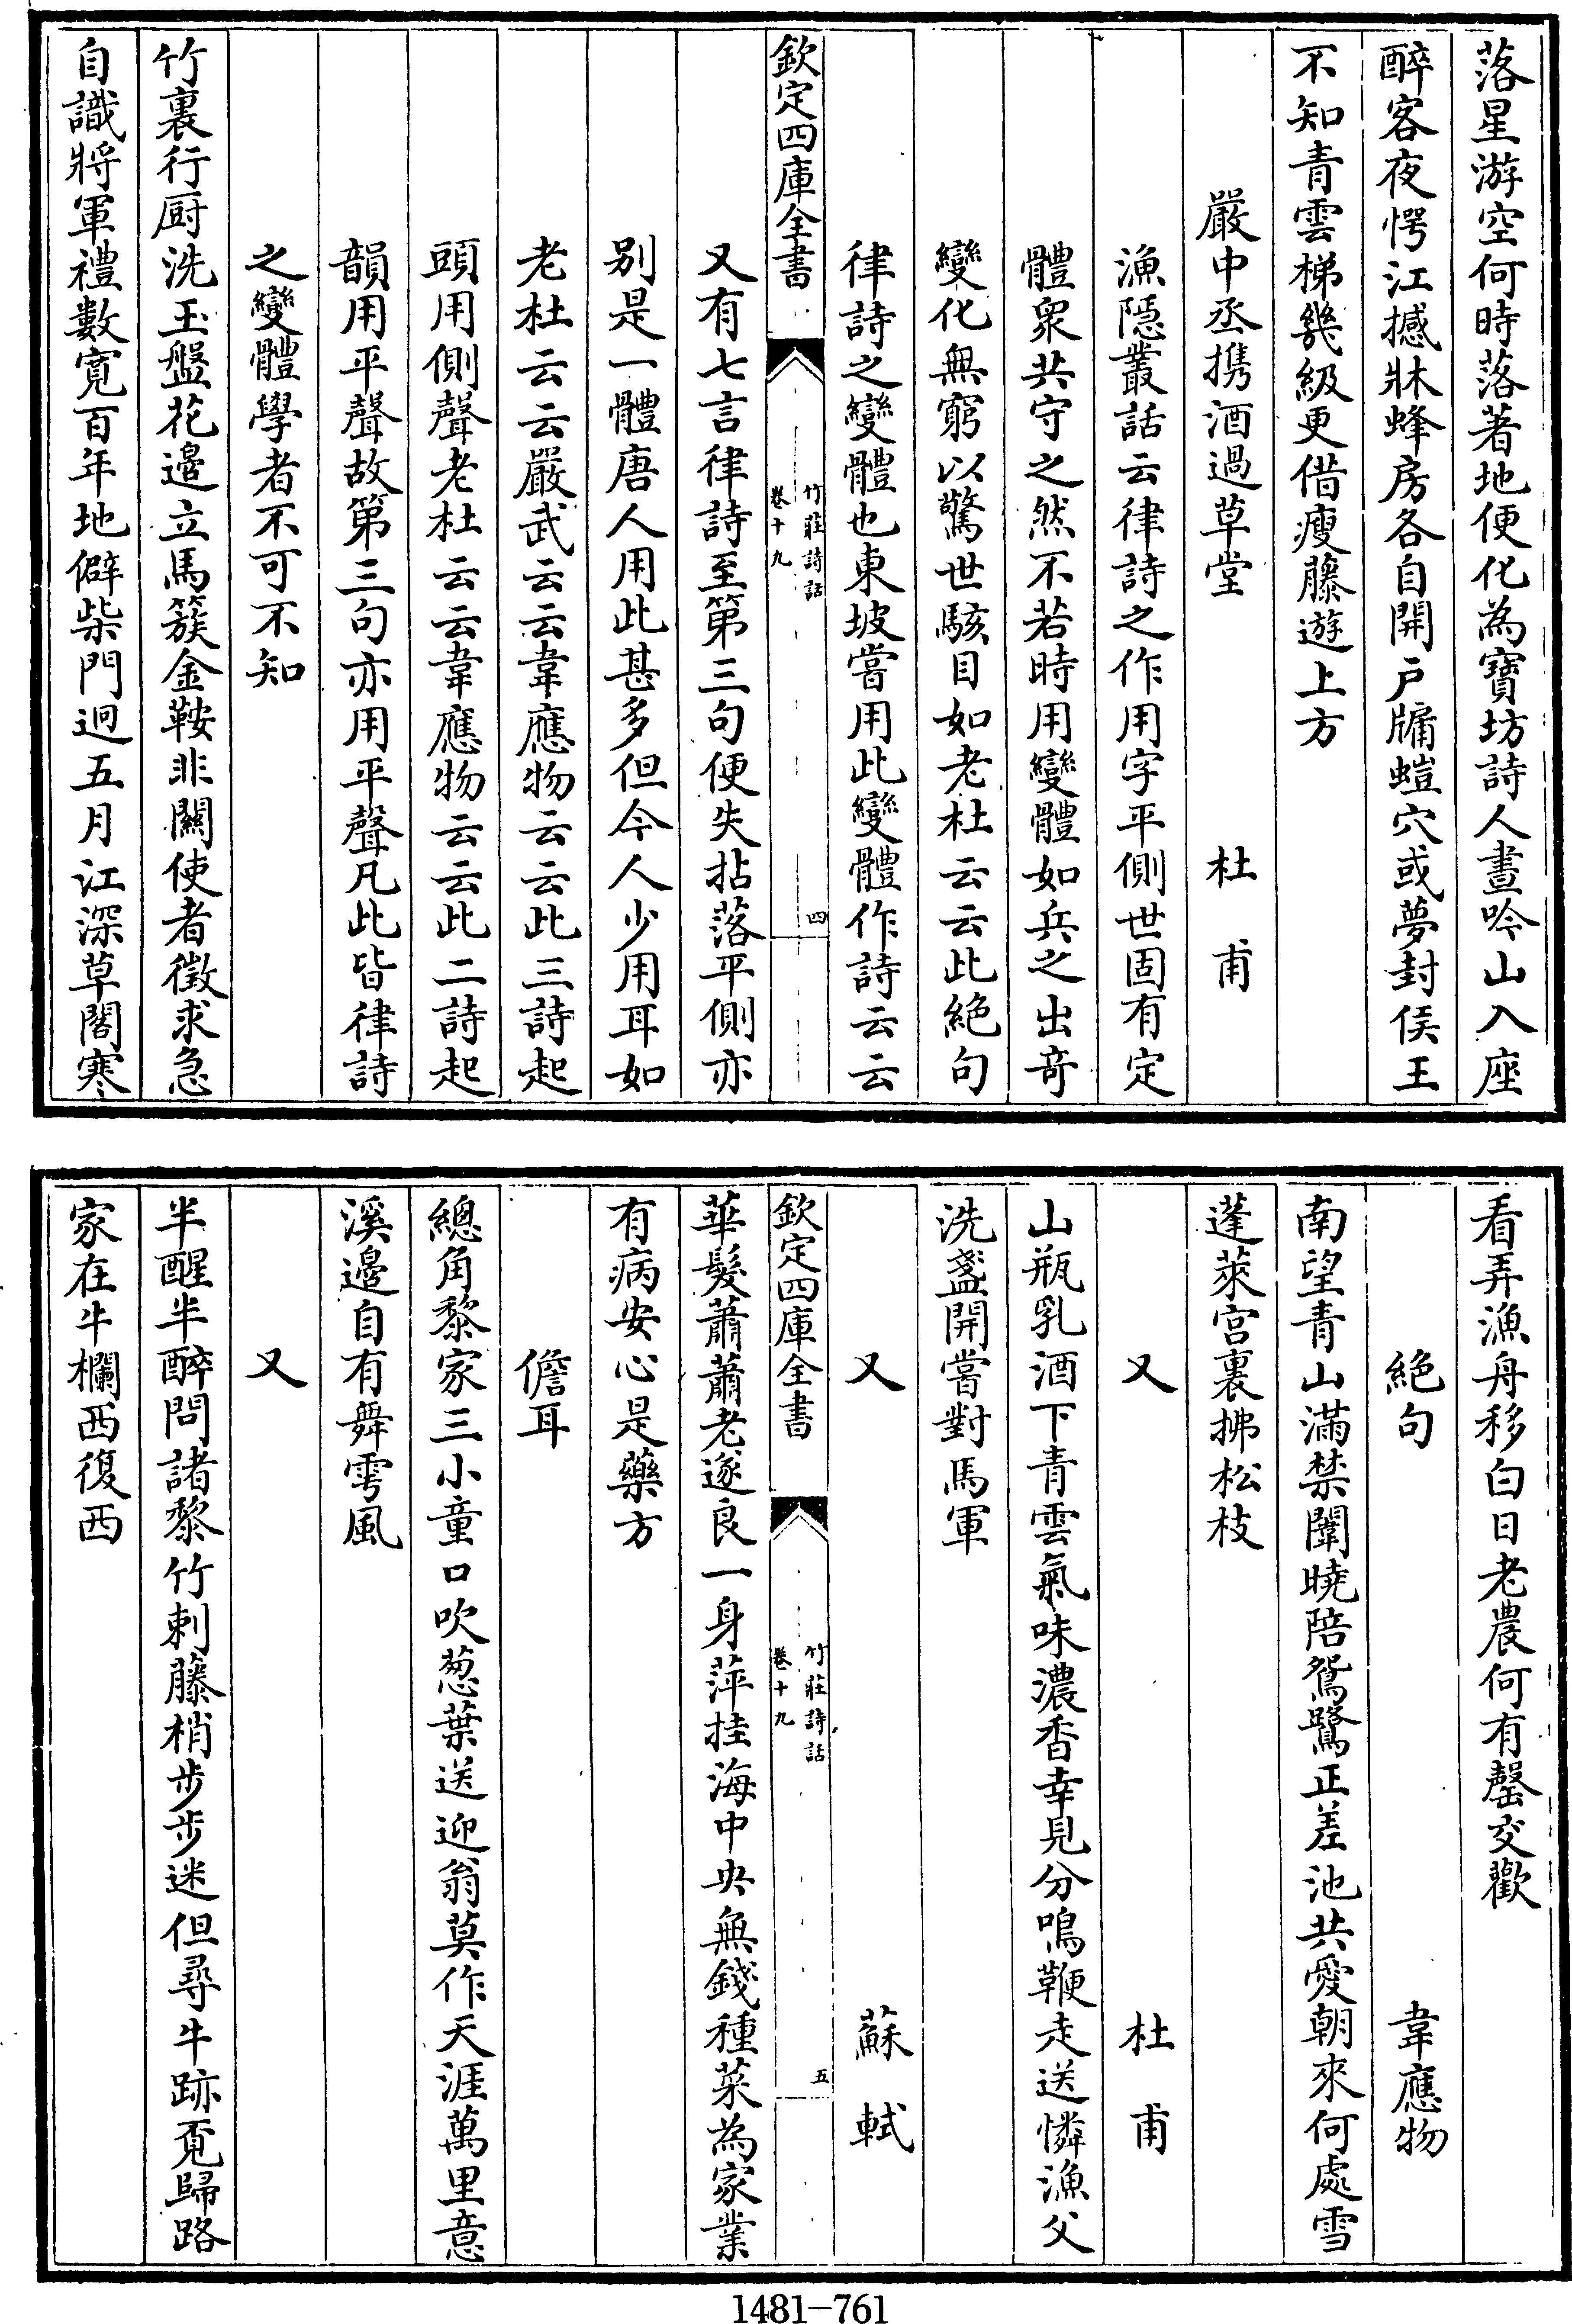 落星游空何時落著地便化為寶坊詩人晝吟山入座
醉客夜愕江撼牀蜂房各自開戶牖螘穴或夢封侯王
不知青雲梯幾級更借瘦藤遊上方
嚴中丞携酒過草堂 杜甫
漁隱叢話云律詩之作用字平側世固有定
體衆共守之然不若時用變體如兵之出奇
變化無窮以驚世駭目如老杜云云此絕句
律詩之變體也東坡嘗用此變體作詩云云
欽定四庫全書
竹莊詩話
卷十九
四
又有七言律詩至第三句便失拈落平側亦
别是一體唐人用此甚多但今人少用耳如
老杜云云嚴武云云韋應物云云此三詩起
頭用側聲老杜云云韋應物云云此二詩起
韻用平聲故第三句亦用平聲凡此皆律詩
之變體學者不可不知
竹裏行厨洗玉盤花邉立馬簇金鞍非關使者徵求急
自識將軍禮數寛百年地僻柴門迥五月江深草閣寒
看弄漁舟移白日老農何有罄交歡
絕句 韋應物
南望青山滿禁闈曉陪鴛鷺正差池共愛朝來何處雪
蓬萊宫裏拂松枝
又 杜甫
山瓶乳酒下青雲氣味濃香幸見分鳴鞭走送憐漁父
洗盞開嘗對馬軍
又 蘇軾
欽定四庫全書
竹莊詩話
卷十九
五
華髮蕭蕭老遂良一身萍挂海中央無錢種菜為家業
有病安心是藥方
儋耳
總角黎家三小童口吹葱葉送迎翁莫作天涯萬里意
溪邉自有舞雩風
又
半醒半醉問諸黎竹刺藤梢步步迷但尋牛跡覔歸路
家在牛欄西復西
1481-761